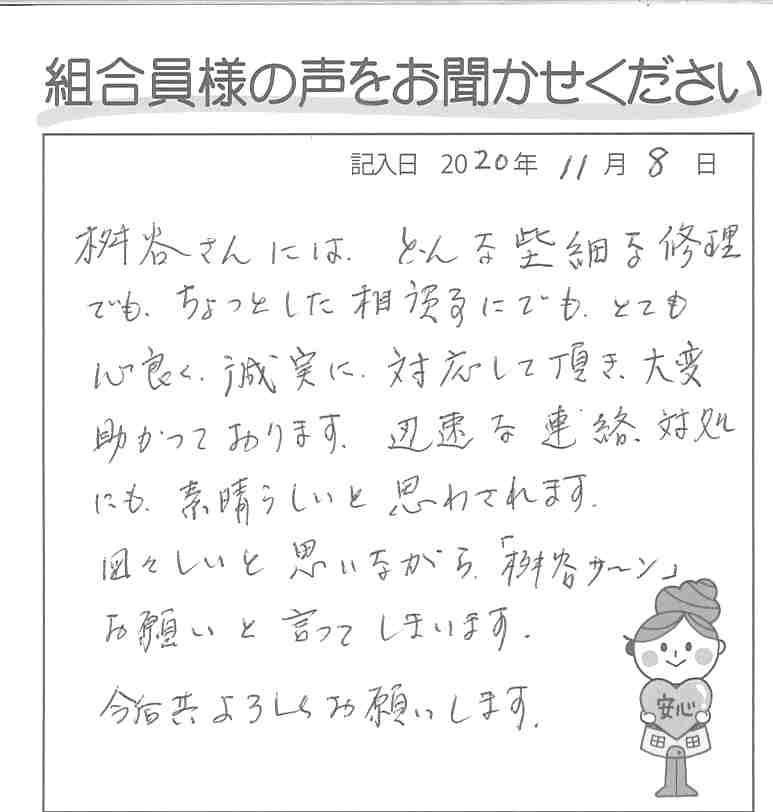 組合員様の声をお聞かせください
記入日 2020年 11月 8日
桝谷さんには、どんな些細な修理
でも、ちょっとした相談事にでも、とても
心良く、誠実に、対応して頂き、大変
助かっております。迅速な連絡、対処
にも、素晴らしいと思わされます。
図々しいと思いながら、「桝谷サ〜ン」
お願いと言ってしまいます。
今后共よろしくお願いします。
安心